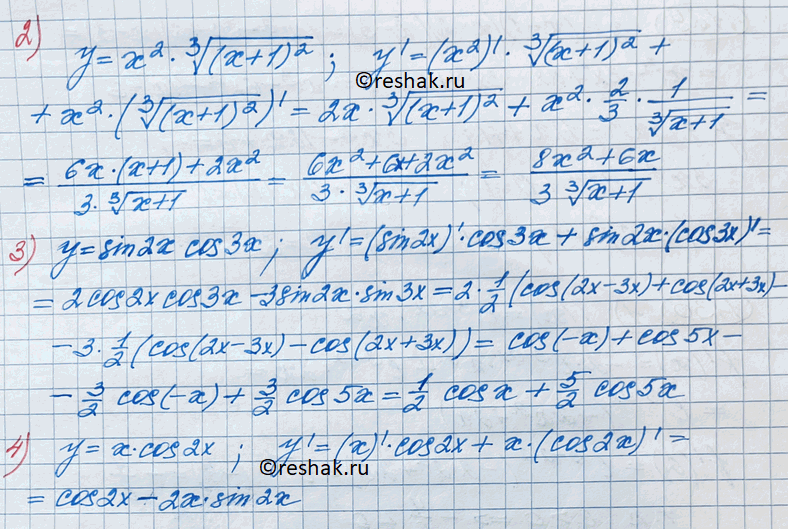 2) y = x² · ∛((x+1)²) ; y' = (x²)' · ∛((x+1)²) +
©reshak.ru
+ x² · (∛((x+1)²))' = 2x · ∛((x+1)²) + x² · 2/3 · 1/∛(x+1) =
= (6x·(x+1)+2x²)/(3·∛(x+1)) = (6x²+6x+2x²)/(3·∛(x+1)) = (8x²+6x)/(3 ∛(x+1))
3) y = sin2x cos3x ; y' = (sin2x)'·cos3x + sin2x·(cos3x)' =
= 2cos2x cos3x - 3sin2x·sin3x = 2·1/2 (cos(2x-3x)+cos(2x+3x) -
- 3·1/2 (cos(2x-3x) - cos(2x+3x)) = cos(-x) + cos5x -
- 3/2 cos(-x) + 3/2 cos5x = 1/2 cosx + 5/2 cos5x
4) y = x·cos2x ; y' = (x)'·cos2x + x·(cos2x)' =
©reshak.ru
= cos2x - 2x·sin2x